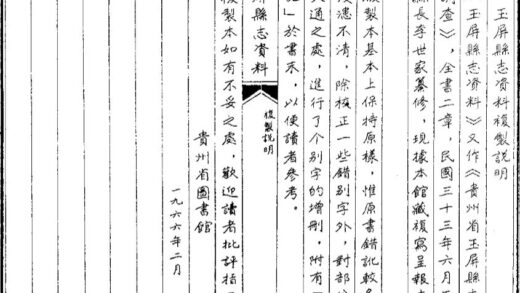 玉屏縣志資料複製説明
玉屏縣志資料》又作《貴州省玉屏縣
調查》，全書二章，民國三十三年六月
縣長李世家纂修，現據本館藏複寫呈報本
製本基本上保持原樣，惟原書錯訛較多
漶不清，除校正一些錯别字外，對部
通之處，進行了个别字的增刪，附有
」於書末，以便讀者參考。
縣志資料
複製説明
製本如有不妥之處，歡迎讀者批評指
貴州省圖書館
一九六六年二月